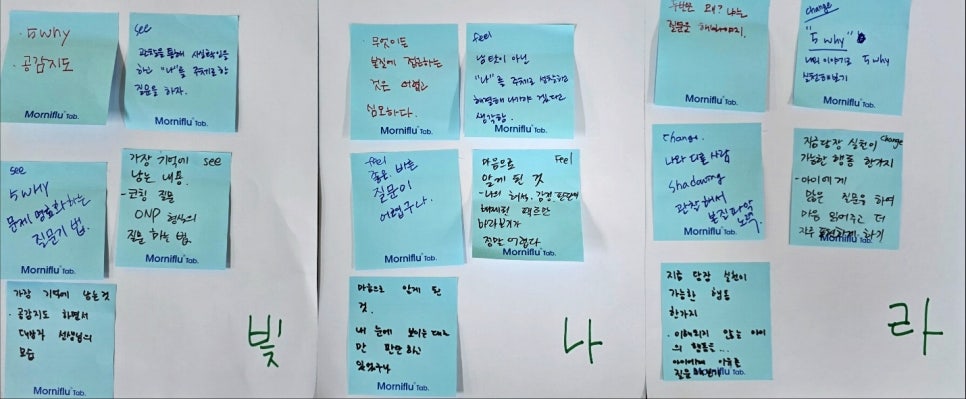 · 5 why
· 공감지도
Morniflu Tab.
see
관찰을 통해 사실확인을
하고 "나"를 주체로한
질문을 하자.
Morniflu Tab.
see
5 WHY
문제 명료화하는
질문기법.
Morniflu Tab.
가장 기억에 see
남는 내용.
- 코칭 질문
ONP 형식의
질문 하는 법.
Morniflu Tab.
가장 기억에 남는것
· 공감지도 하면서
선생님의
모습
Morniflu Tab.
빛
무엇이든
본질에 접근하는
것은 어렵고
심오하다.
Morniflu Tab.
feel
남탓이 아닌
"나"를 주체로 생각하고
해결해 나가야 겠다고
생각함.
Morniflu Tab.
feel
좋은 바른
질문이
어렵구나.
Morniflu Tab.
마음으로 Feel
알게 된 것
- 나의 해석, 감정, 판단이
팩트만
바라보기가
정말 어렵다
Morniflu Tab.
마음으로 알게 된
것.
내 눈에 보이는 대로
만 판단 하고
있었구나
Morniflu Tab.
나
왜? 나는
질문을 해봐야지.
Morniflu Tab.
change
"5 why"
나의 이야기로 5 why
실천해보기
Morniflu Tab.
change.
나와 다른 사람
shadowing
관찰해서
본질파악
노력.
Morniflu Tab.
지금당장 실천이 change
가능한 행동 한가지
- 아이에게
많은 질문을 하여
마음 읽어주고 더
자주 하기
Morniflu Tab.
지금 당장 실천이
가능한 행동
한가지
· 이해되지 않는 아이
의 행동을...
아이에게 이유를
Morniflu Tab.
라